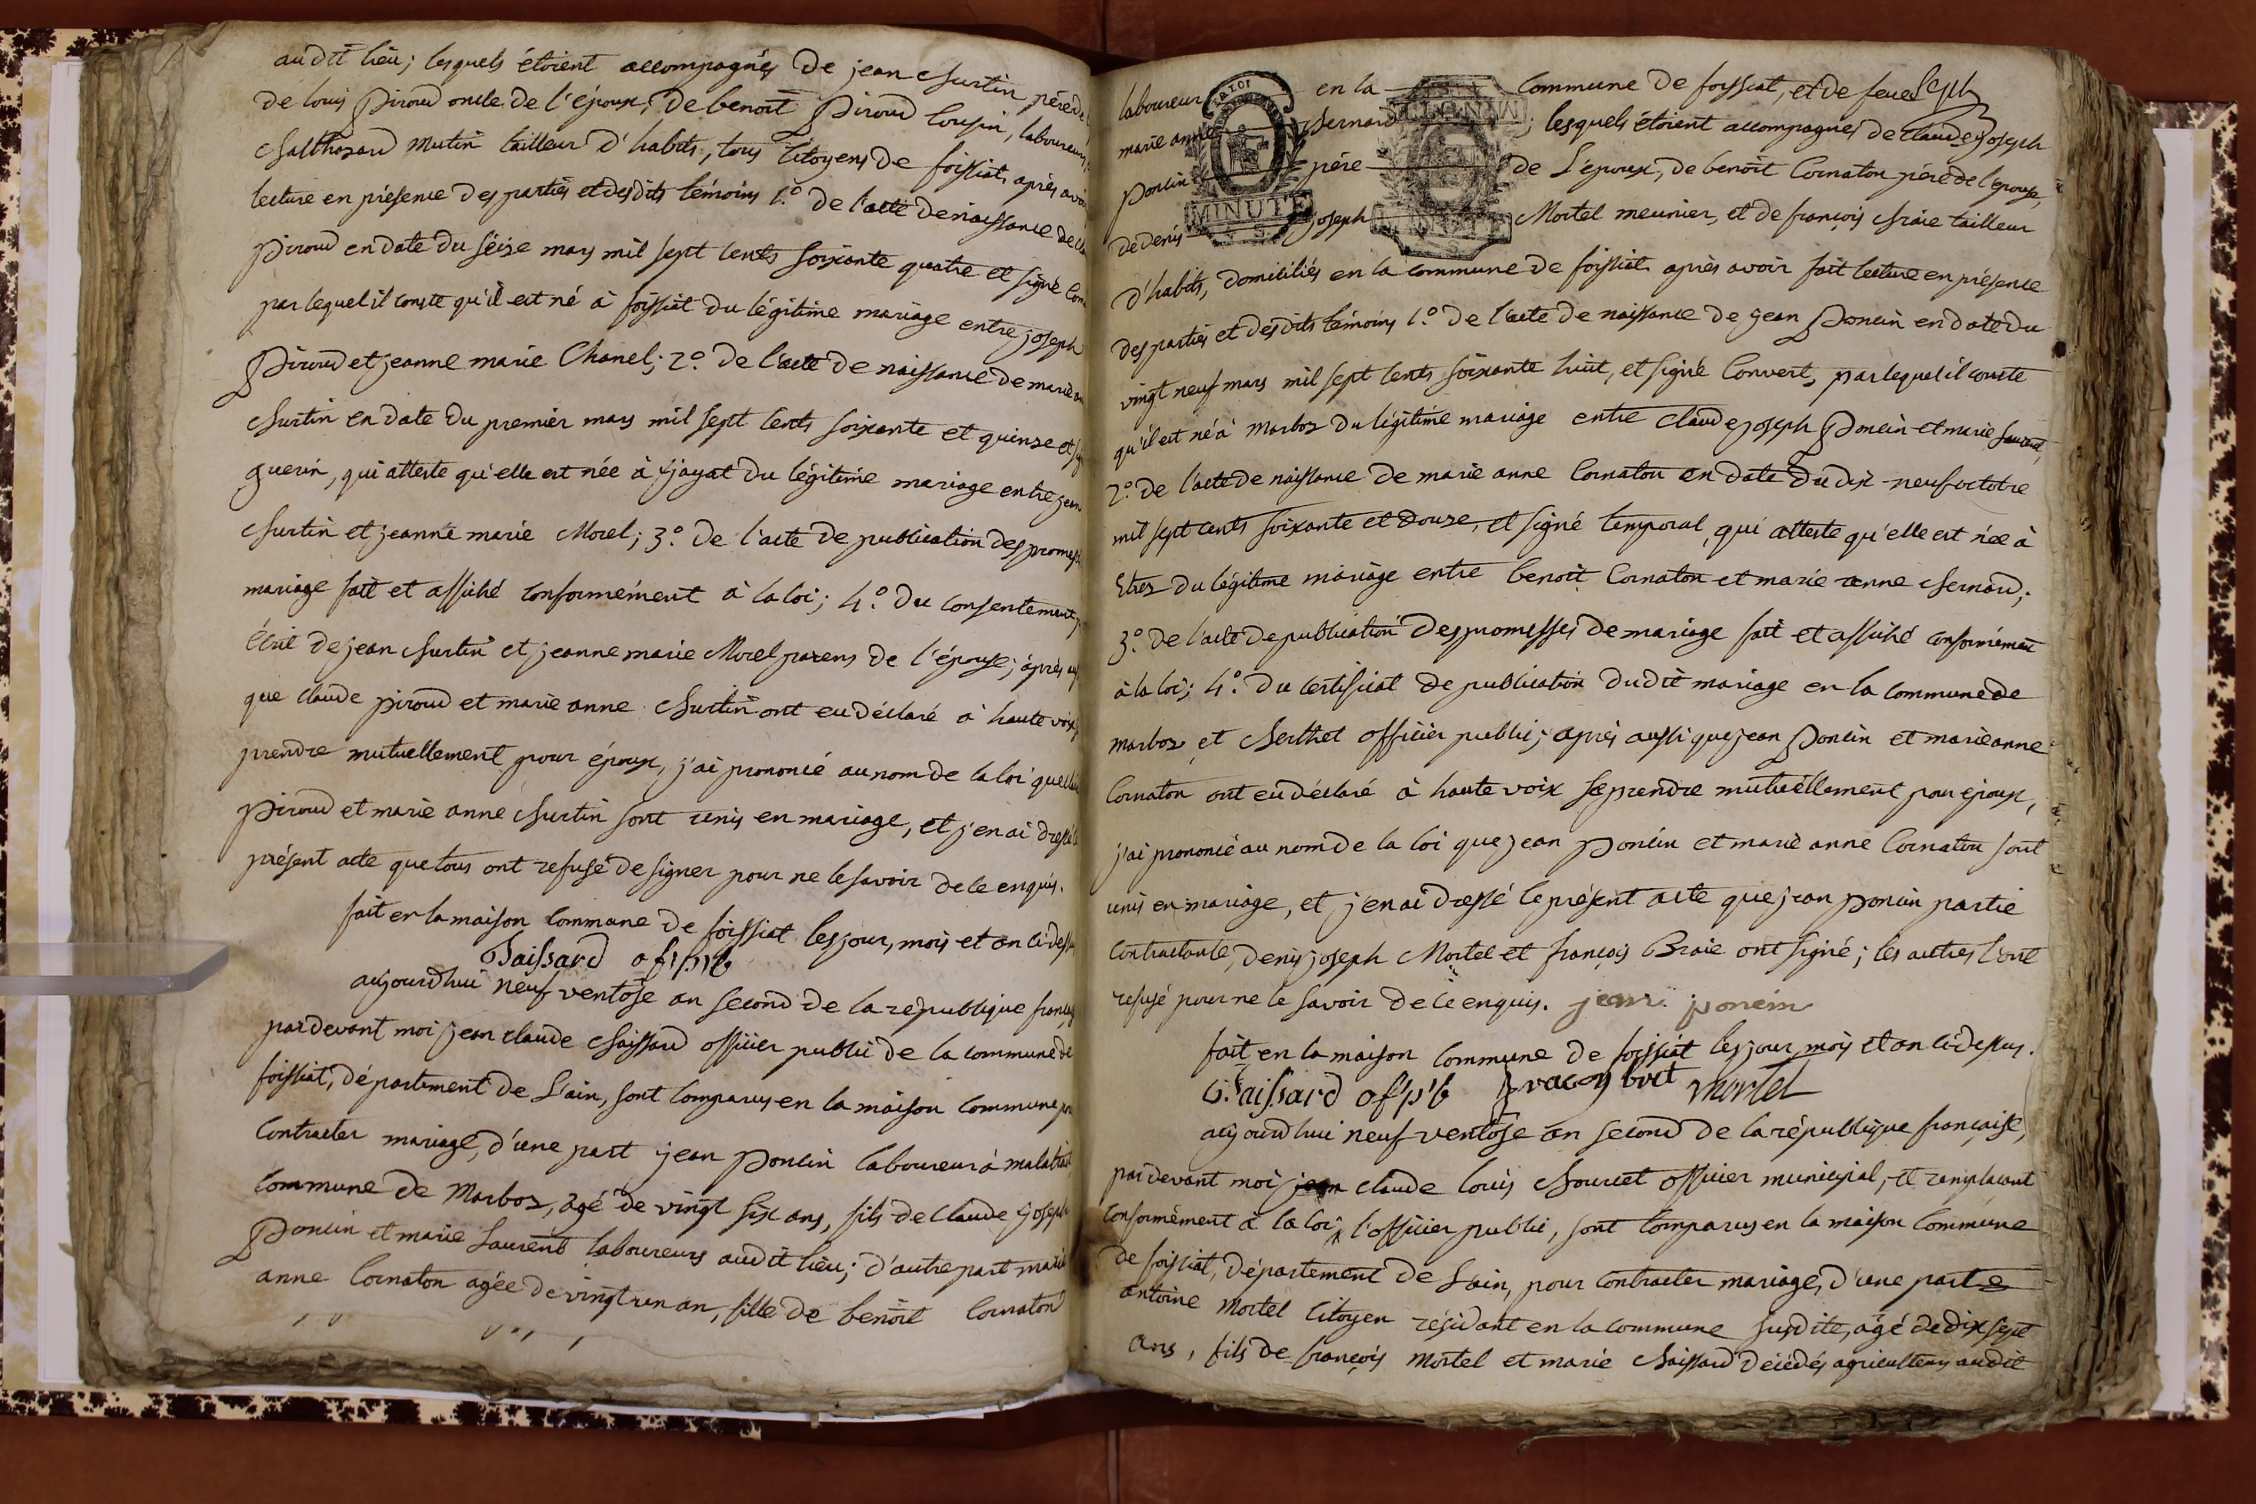 audit lieu; lesquels étoient accompagnés de jean Burtin père de
de louis Piroud oncle de l'époux; de benoit Piroud cousin, laboureurs,
Balthazard Mutin tailleur d'habits, tous citoyens de foissiat, après avoir
lecture en présence des parties et desdits témoins 1.° de l'acte de naissance de
Piroud en date du seize mars mil sept cents soixante quatre et signé
par lequel il conste qu'il est né à foissiat du légitime mariage entre joseph
Piroud et jeanne marie Chanel; 2.° de l'acte de naissance de marie
Burtin en date du premier mars mil sept cents soixante et quinze et
guerin, qui atteste qu'elle est née à jayat du légitime mariage entre jean
Burtin et jeanne marie Morel; 3.° de l'acte de publication des
mariage fait et affiché conformément à la loi; 4.° du consentement
écrit de jean Burtin et jeanne marie Morel parens de l'épouse; après
que claude piroud et marie anne Burtin ont eu déclaré à haute voix
prendre mutuellement pour époux, j'ai prononcé au nom de la loi que
Piroud et marie anne Burtin sont unis en mariage, et j'en ai dressé
présent acte que tous ont refusé de signer pour ne le savoir de ce enquis.
fait en la maison commune de foissiat les jour, mois et an
Baissard of p b
aujourdhui neuf ventôse an second de la république
pardevant moi jean claude Baissard officier public de la commune de
foissiat, département de L'ain, sont comparus en la maison commune
contracter mariage, d'une part jean Poncin laboureur à
commune de Marboz, agé de vingt six ans, fils de claude joseph
Poncin et marie Laurent laboureurs audit lieu; d'autre part marie
anne Cornaton agée de vingt un an, fille de benoit Cornaton
laboureur en la commune de foissiat, et de feue
marie anne Bernard; lesquels étoient accompagnés de claude joseph
Poncin père de L'époux, de benoit Cornaton père de l'epouse,
de denis joseph Mortel meunier, et de françois Braie tailleur
d'habits, domiciliés en la commune de foissiat après avoir fait lecture en présence
des parties et desdits témoins 1.° de l'acte de naissance de jean Poncin en date du
vingt neuf mars mil sept cents soixante huit, et signé Convert, par lequel il conste
qu'il est né à marboz du légitime mariage entre claude joseph Poncin et marie Laurent,
2.° de l'acte de naissance de marie anne Cornaton en date du dix-neuf octobre
mil sept cents soixante et douze, et signé temporal, qui atteste qu'elle est née à
Etrez du légitime mariage entre benoit Cornaton et marie anne Bernard;
3.° de l'acte de publication des promesses de mariage fait et affiché conformément
à la loi; 4.° du certificat de publication dudit mariage en la commune de
marboz, et Berthet officier public; après aussi que jean Poncin et marie anne
Cornaton ont eu déclaré à haute voix se prendre mutuellement pour époux,
j'ai prononcé au nom de la loi que jean Poncin et marie anne Cornaton sont
unis en mariage, et j'en ai dressé le présent acte que jean poncin partie
contractante, denis joseph Mortel et françois Braie ont signé; les autres l'ont
refusé pour ne le savoir de ce enquis. jean poncin
fait en la maison commune de foissiat les jour mois et an ci-dessus.
Baissard of p b mortel
aujourdhui neuf ventôse an second de la république française,
pardevant moi claude louis Bourcet officier municipal, et remplaçant
conformément à la loi, l'officier public, sont comparus en la maison commune
de foissiat, département de L'ain, pour contracter mariage, d'une part
antoine mortel citoyen résidant en la commune susdite, agé de dix sept
ans, fils de françois mortel et marie Baissard décédés agriculteurs audit
MINUTE
LA LOI